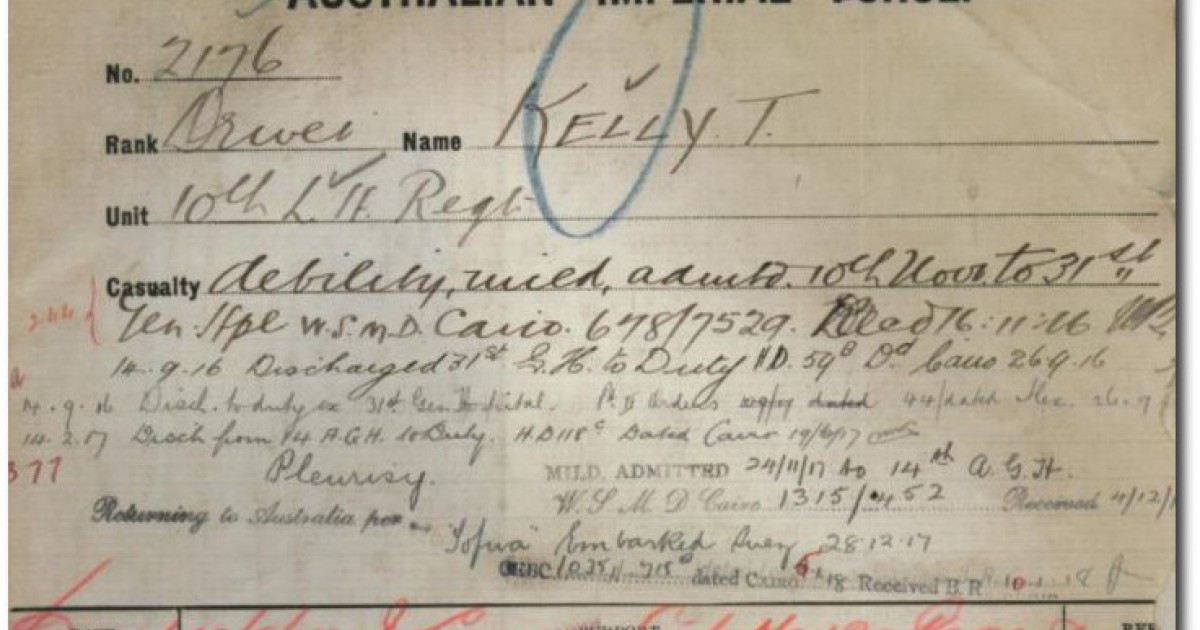 AUSTRALIAN IMPERIAL FORCE.
No. 2176
Rank Driver Name KELLY. T.
Unit 10th L. H. Regt
Casualty debility, mild, admtd. 10th Nov. to 31st
Gen. Hpl W.S.M.D. Cairo. 678/7529. 16:11:16
14.9.16 Discharged 31st G.H. to Duty HD. 59 Dd Cairo 26.9.16
14.9.16 Disch. to duty ex 31st Gen Hospital. Pt II Orders dated 44/dated 26.9
14.2.17 Disch from 14 A.G.H. to Duty. H.D 118 Dated Cairo 19/6/17
377
Pleurisy. MILD. ADMITTED 24/11/17 to 14th A.G.H.
W.S M D Cairo 1315/452 Received 4/12/1
Returning to Australia per "Tofua" Embarked Suez 28.12.17
dated CAIRO 18 Received B.R 10.1.18